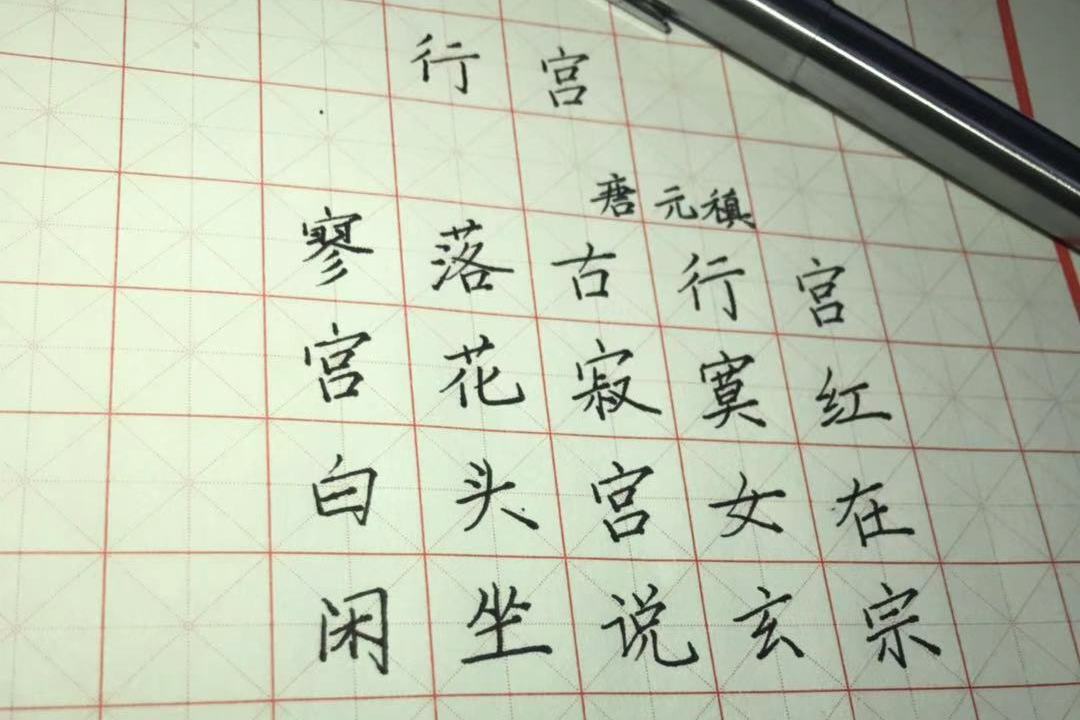 行宫
唐 元稹
寥落古行宫
宫花寂寞红
白头宫女在
闲坐说玄宗